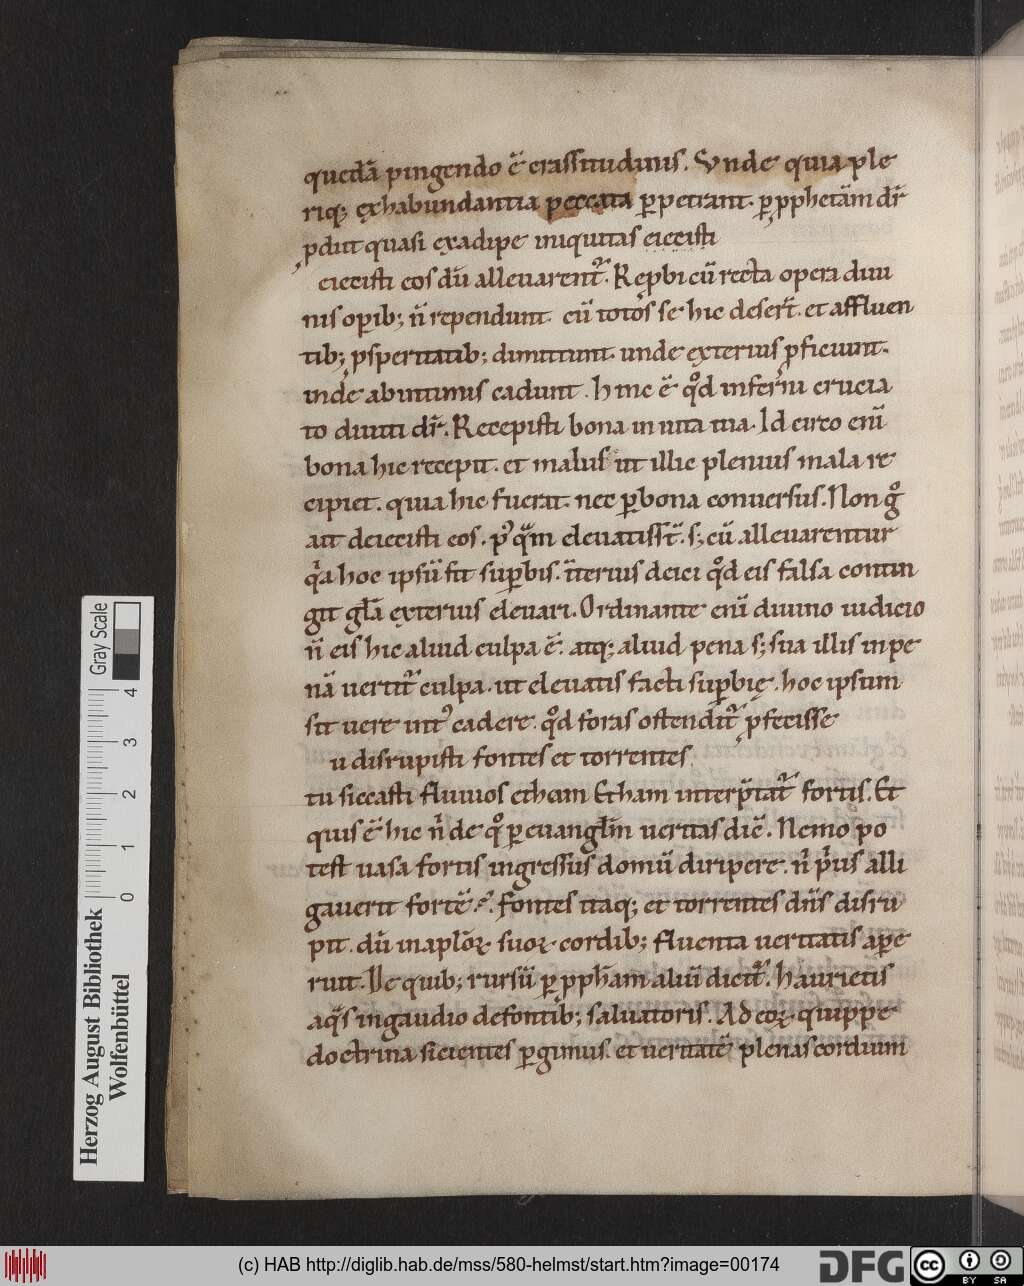 quedā pingendo ē crassitudinis. Vnde quia ple
riq; exhabundantia peccata ꝑpetrant. ꝑ ꝓphetam dr̄
ꝓdiit quasi exadipe iniquitas eiecisti
eiecisti eos dū alleuarent᷑. Reꝓbi cū recta opera diui
nis oꝑib; ñ rependunt. cū totos se hic deser̄t. et affluen
tib; ꝓsperitatib; dimittunt. unde exterius ꝓficiunt.
inde abintimis cadunt. hinc ē qd̊ inferni crucia
to diuiti dr̄. Recepisti bona in uita tua. Id circo enī
bona hic recepit. et malus ut illic plenius mala re
cipiet. quia hic fuerat. nec ꝑbona conuersus. Non g̊
ait deiecisti eos. p᷒ q̄m eleuati ss̄t. s; cū alleuarentur
qͣ hoc ipsū fit suꝑbis. interius deici qd̊ eis falsa contin
git gl̄a exterius eleuari. Ordinante enī diuino iudicio
ñ eis hic aliud culpa ē. atq; aliud pena s; sua illis in pe
nā uertit᷑ culpa. ut eleuatis facti suꝑbię. hoc ipsum
sit uere int᷒ cadere. qd̊ foras ostendit᷑ ꝓfecisse
u disrupisti fontes et torrentes
tu siccasti fluuios etham Etham interp̄tat᷑ fortis. Et
quis ē hic ñ de q̊ ꝑ euangl̄m ueritas dic̄. Nemo po
test uasa fortis ingressus domū diripere. ñ pⁱus alli
gauerit fortē. Fontes itaq; et torrentes dn̄s disru
pit. dū in aplōꝝ suoꝝ cordib; fluenta ueritatis aꝑe
ruit. De quib; rursū ꝑ ꝓph̄am aliū dicit᷑. haurietis
aq̄s ingaudio defontib; saluatoris. Ad eoꝝ quippe
doctrina sicientes ꝑgimus. et ueritatē plenas cordium
Gray Scale
4 3 2 1 0
Herzog August Bibliothek
Wolfenbüttel
(c) HAB http://diglib.hab.de/mss/580-helmst/start.htm?image=00174
DFG
cc BY SA